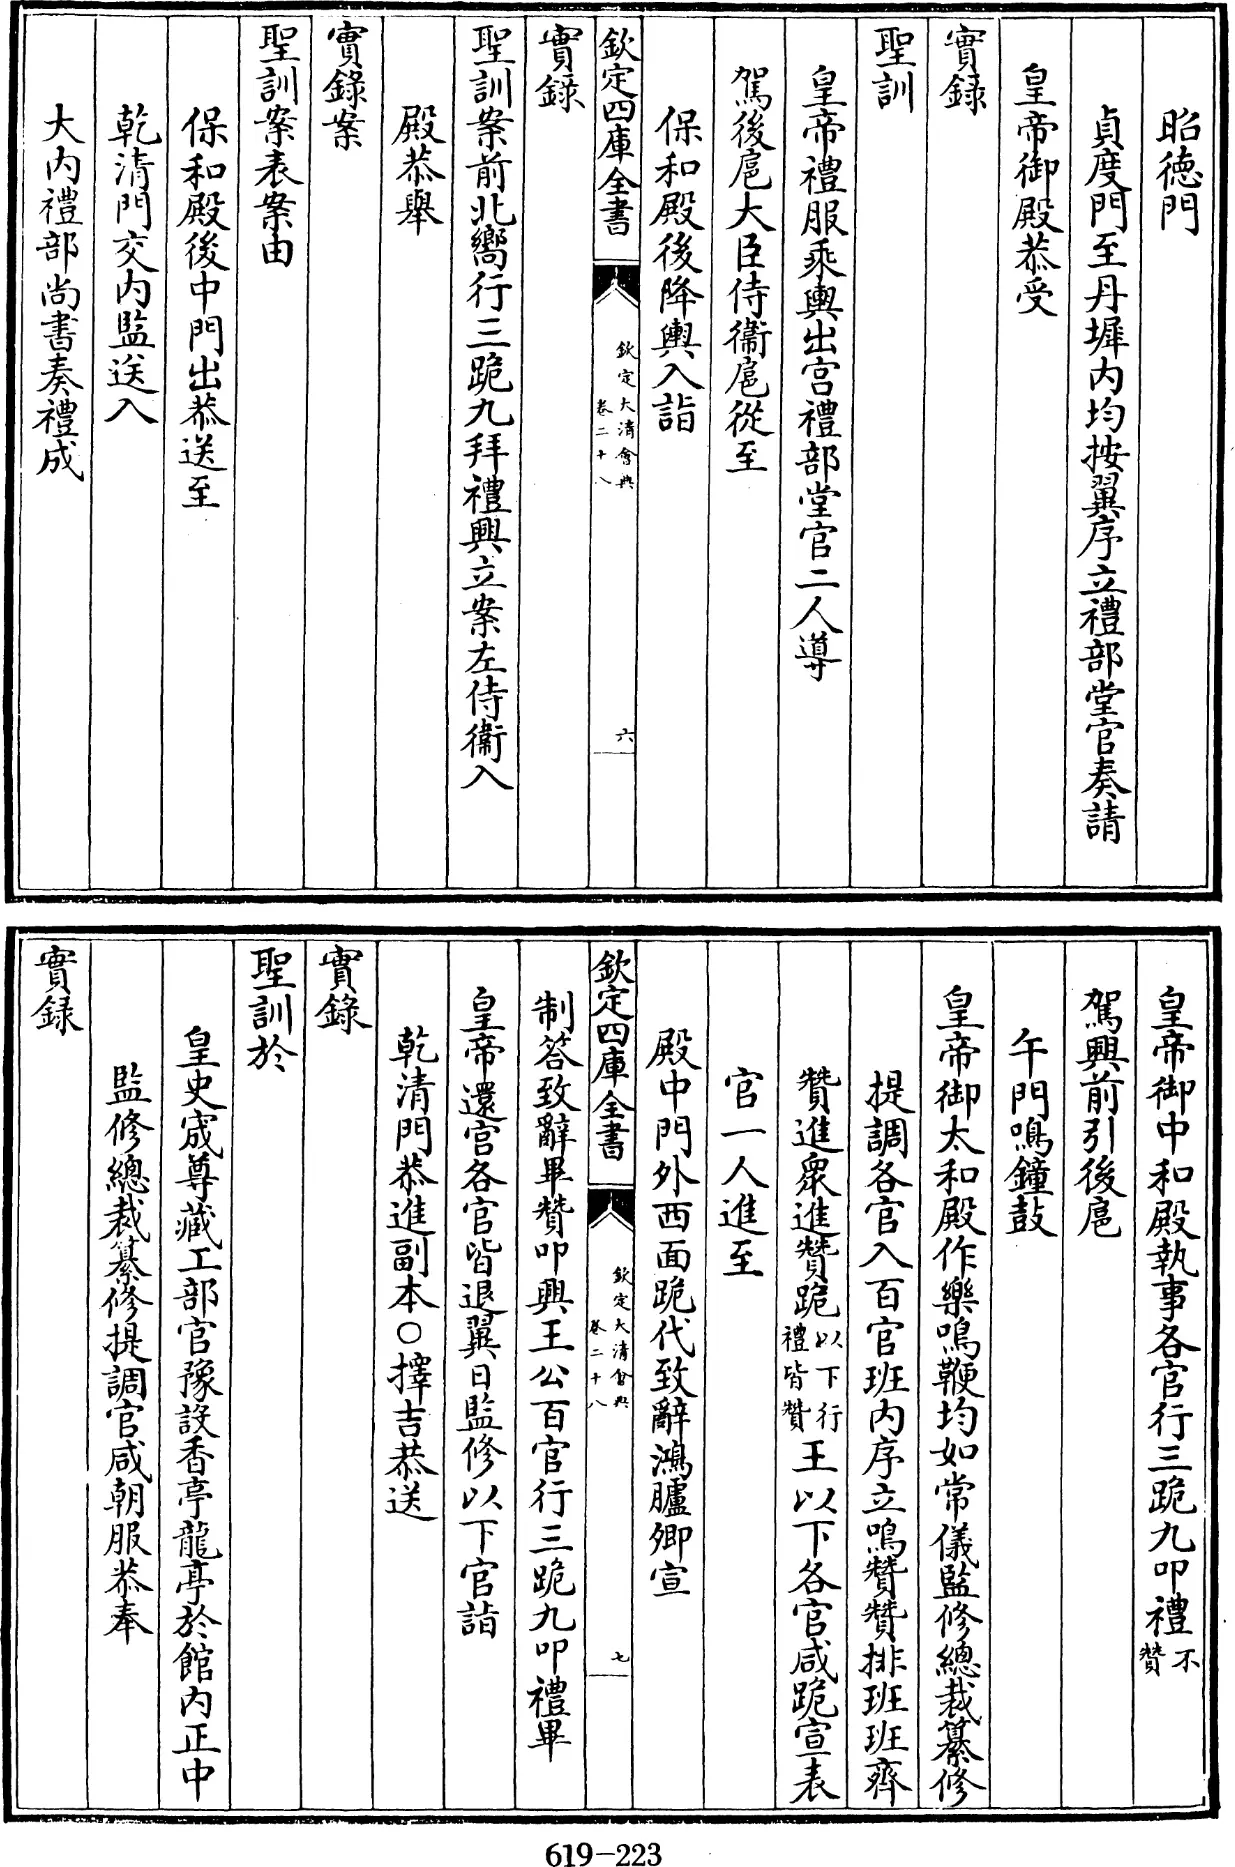 昭德門
貞度門至丹墀内均按翼序立禮部堂官奏請
皇帝御殿恭受
實錄
聖訓
皇帝禮服乘輿出宫禮部堂官二人導
駕後扈大臣侍衛扈從至
保和殿後降輿入詣
欽定四庫全書
欽定大清會典
卷二十八
六
實錄
聖訓案前北嚮行三跪九拜禮興立案左侍衛入
殿恭舉
實錄案
聖訓案表案由
保和殿後中門出恭送至
乾清門交内監送入
大内禮部尚書奏禮成
皇帝御中和殿執事各官行三跪九叩禮不
贊
駕興前引後扈
午門鳴鐘鼓
皇帝御太和殿作樂鳴鞭均如常儀監修總裁纂修
提調各官入百官班内序立鳴贊贊排班班齊
贊進衆進贊跪以下行
禮皆贊王以下各官咸跪宣表
官一人進至
殿中門外西面跪代致辭鴻臚卿宣
欽定四庫全書
欽定大清會典
卷二十八
七
制答致辭畢贊叩興王公百官行三跪九叩禮畢
皇帝還宫各官皆退翼日監修以下官詣
乾清門恭進副本○擇吉恭送
實錄
聖訓於
皇史宬尊藏工部官豫設香亭龍亭於館内正中
監修總裁纂修提調官咸朝服恭奉
實錄
619-223